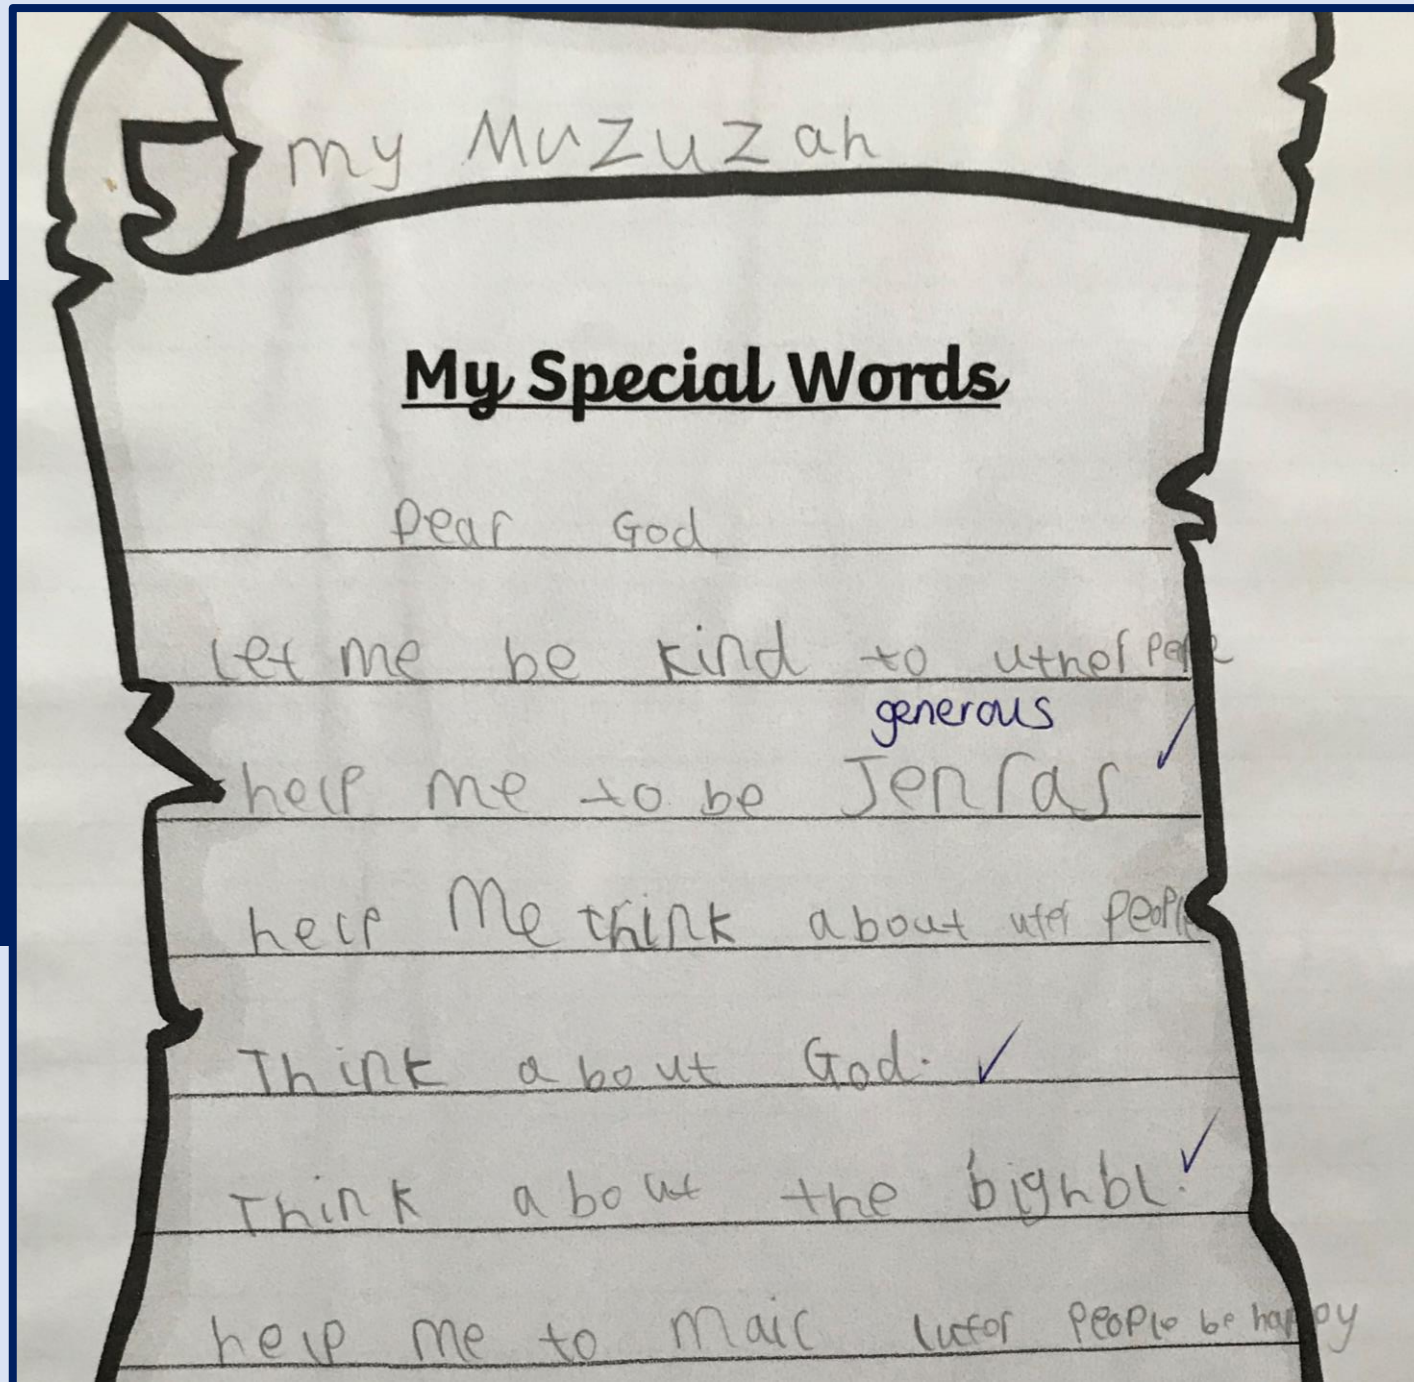 my Muzuzah
My Special Words
Dear God
Let me be kind to uther
generous
help me to be Jenras
help Me think about uter people
Think about God.
Think about the bighbl.
help me to maic people be happy